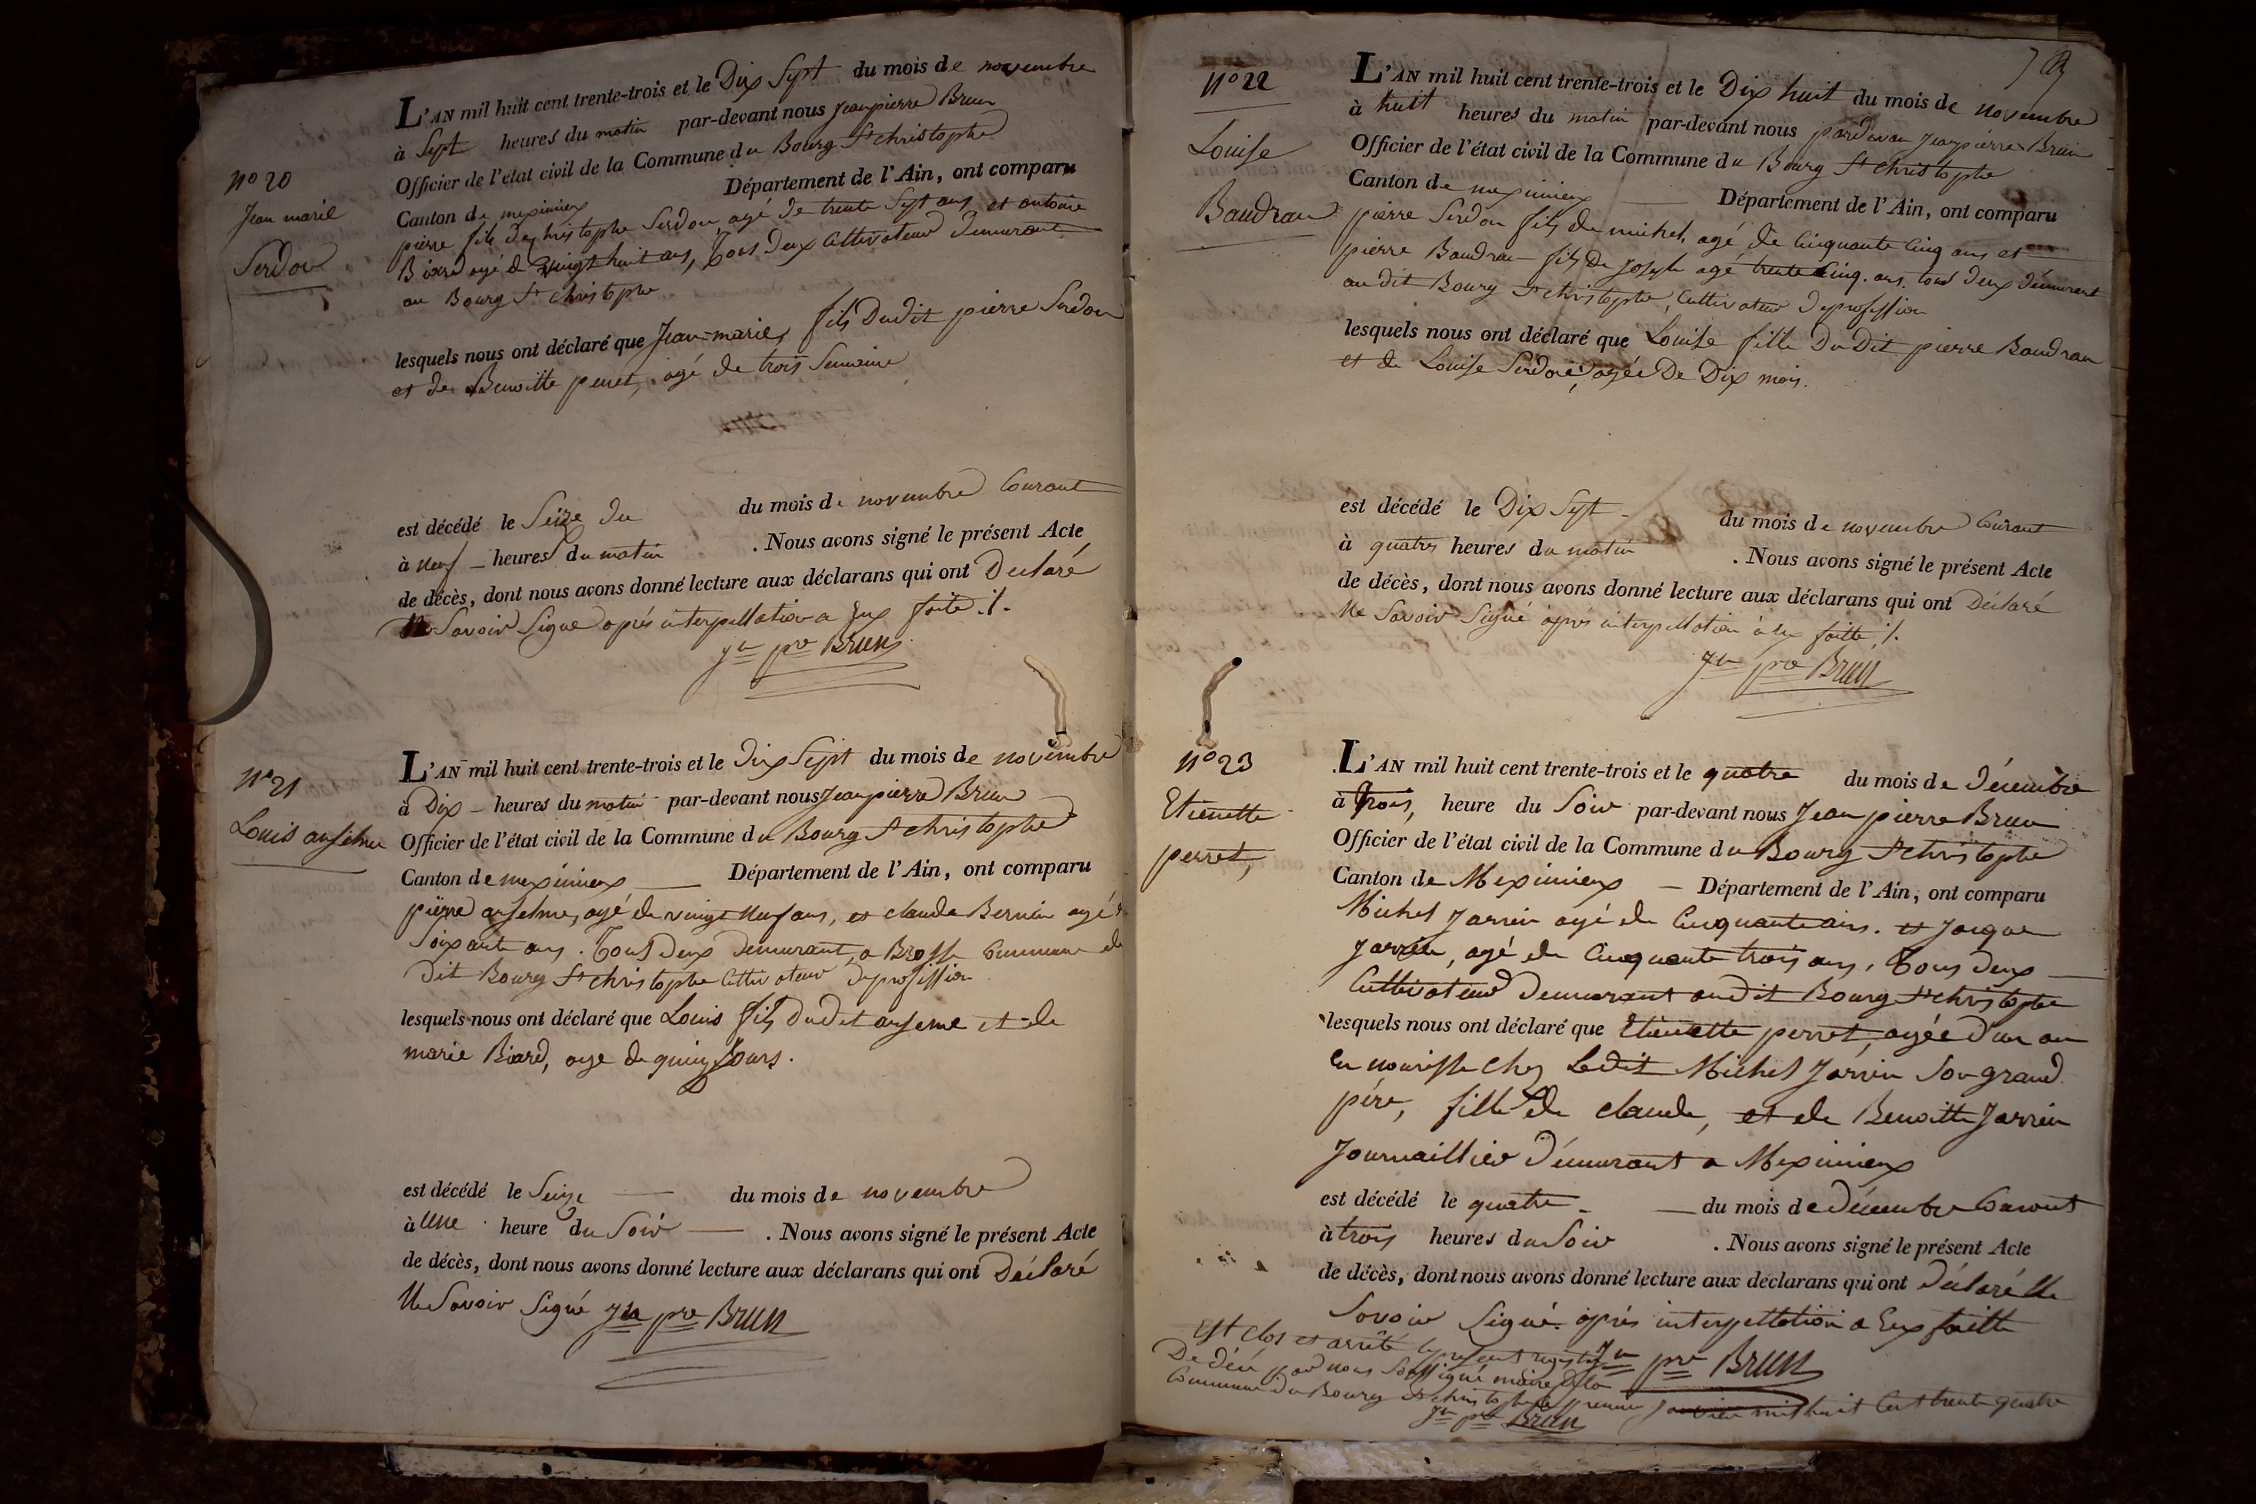 n° 20
Jean marie
Serdon
L'AN mil huit cent trente-trois et le Dix Sept du mois de novembre
à Sept heures du matin par-devant nous Jean pierre Brun
Officier de l'état civil de la Commune du Bourg St christophe
Canton de meximieux Département de l'Ain, ont comparu
pierre fils de christophe Serdon, agé de trente Sept ans et antoine
Biard agé de vingt huit ans, Tous deux Cultivateur demurant
au Bourg St christophe
lesquels nous ont déclaré que Jean-marie, fils Dudit pierre Serdon
et de Benoitte perret, agé de trois Semaine
est décédé le Seize du du mois de novembre Courant
à neuf heures du matin . Nous avons signé le présent Acte
de décès, dont nous avons donné lecture aux déclarans qui ont Déclaré
Ne Savoir Signé après interpellation a Eux faite ./.
jn pre Brun
n° 21
Louis anselme
L'AN mil huit cent trente-trois et le Dix Sept du mois de novembre
à Dix heures du matin par-devant nous Jean pierre Brun
Officier de l'état civil de la Commune du Bourg St christophe
Canton de meximieux Département de l'Ain, ont comparu
pierre anselme, agé de vingt neuf ans, et claude Bernin agé de
Soixante ans. Tous deux demurant, a Brosse Commune du
dit Bourg St christophe Cultivateur de profession
lesquels nous ont déclaré que Louis fils Dudit anselme et de
marie Biard, age de quinz Jours.
est décédé le Seize du mois de novembre
à Une heure du Soir . Nous avons signé le présent Acte
de décès, dont nous avons donné lecture aux déclarans qui ont Déclaré
Ne Savoir Signé jn pre Brun
n° 22
Louise
Baudran
L'AN mil huit cent trente-trois et le Dix huit du mois de novembre
à huit heures du matin par-devant nous pardevan Jean pierre Brun
Officier de l'état civil de la Commune du Bourg St christophe
Canton de meximieux Département de l'Ain, ont comparu
pierre Serdon fils de michel, agé de Cinquante Cinq ans et
pierre Baudran fils de Joseph agé trente Cinq ans. tous deux démurant
au dit Bourg St christophe, Cultivateur de profession
lesquels nous ont déclaré que Louise fille Du Dit pierre Baudran
et de Louise Serdon, agée De Dix mois.
est décédé le Dix Sept du mois de novembre Courant
à quatres heures du matin . Nous avons signé le présent Acte
de décès, dont nous avons donné lecture aux déclarans qui ont Déclaré
Ne Savoir Signé après interpellation à Eux faitte ./.
jn pre Brun
n° 23
Etienette
perret,
L'AN mil huit cent trente-trois et le quatre du mois de Décembre
à trois, heure du Soir par-devant nous Jean pierre Brun
Officier de l'état civil de la Commune du Bourg St christophe
Canton de Meximieux Département de l'Ain, ont comparu
Michel Jarrin agé de Cinquante ans. et Jacque
Jarrin, agé de Cinquante trois ans, Tous deux
Cultivateur Demurant audit Bourg St christophe
lesquels nous ont déclaré que Etienette perret, agée d'un an
En nourisse chez Ledit Michel Jarrin Son grand
père, fille de claude, et de Benoitte Jarrin
Journaillier démurant a Meximieux
est décédé le quatre du mois de Décembre Courant
à trois heures du Soir . Nous avons signé le présent Acte
de décès, dont nous avons donné lecture aux déclarans qui ont Déclaré Ne
Savoir Signé après interpellation a Eux faitte
jn pre Brun
Est clos et arrêté le présent registre
De décé par nous Soussigné maire de la
Commune du Bourg St christophe le premier Janvier mil huit Cent trente quatre
jn pre Brun